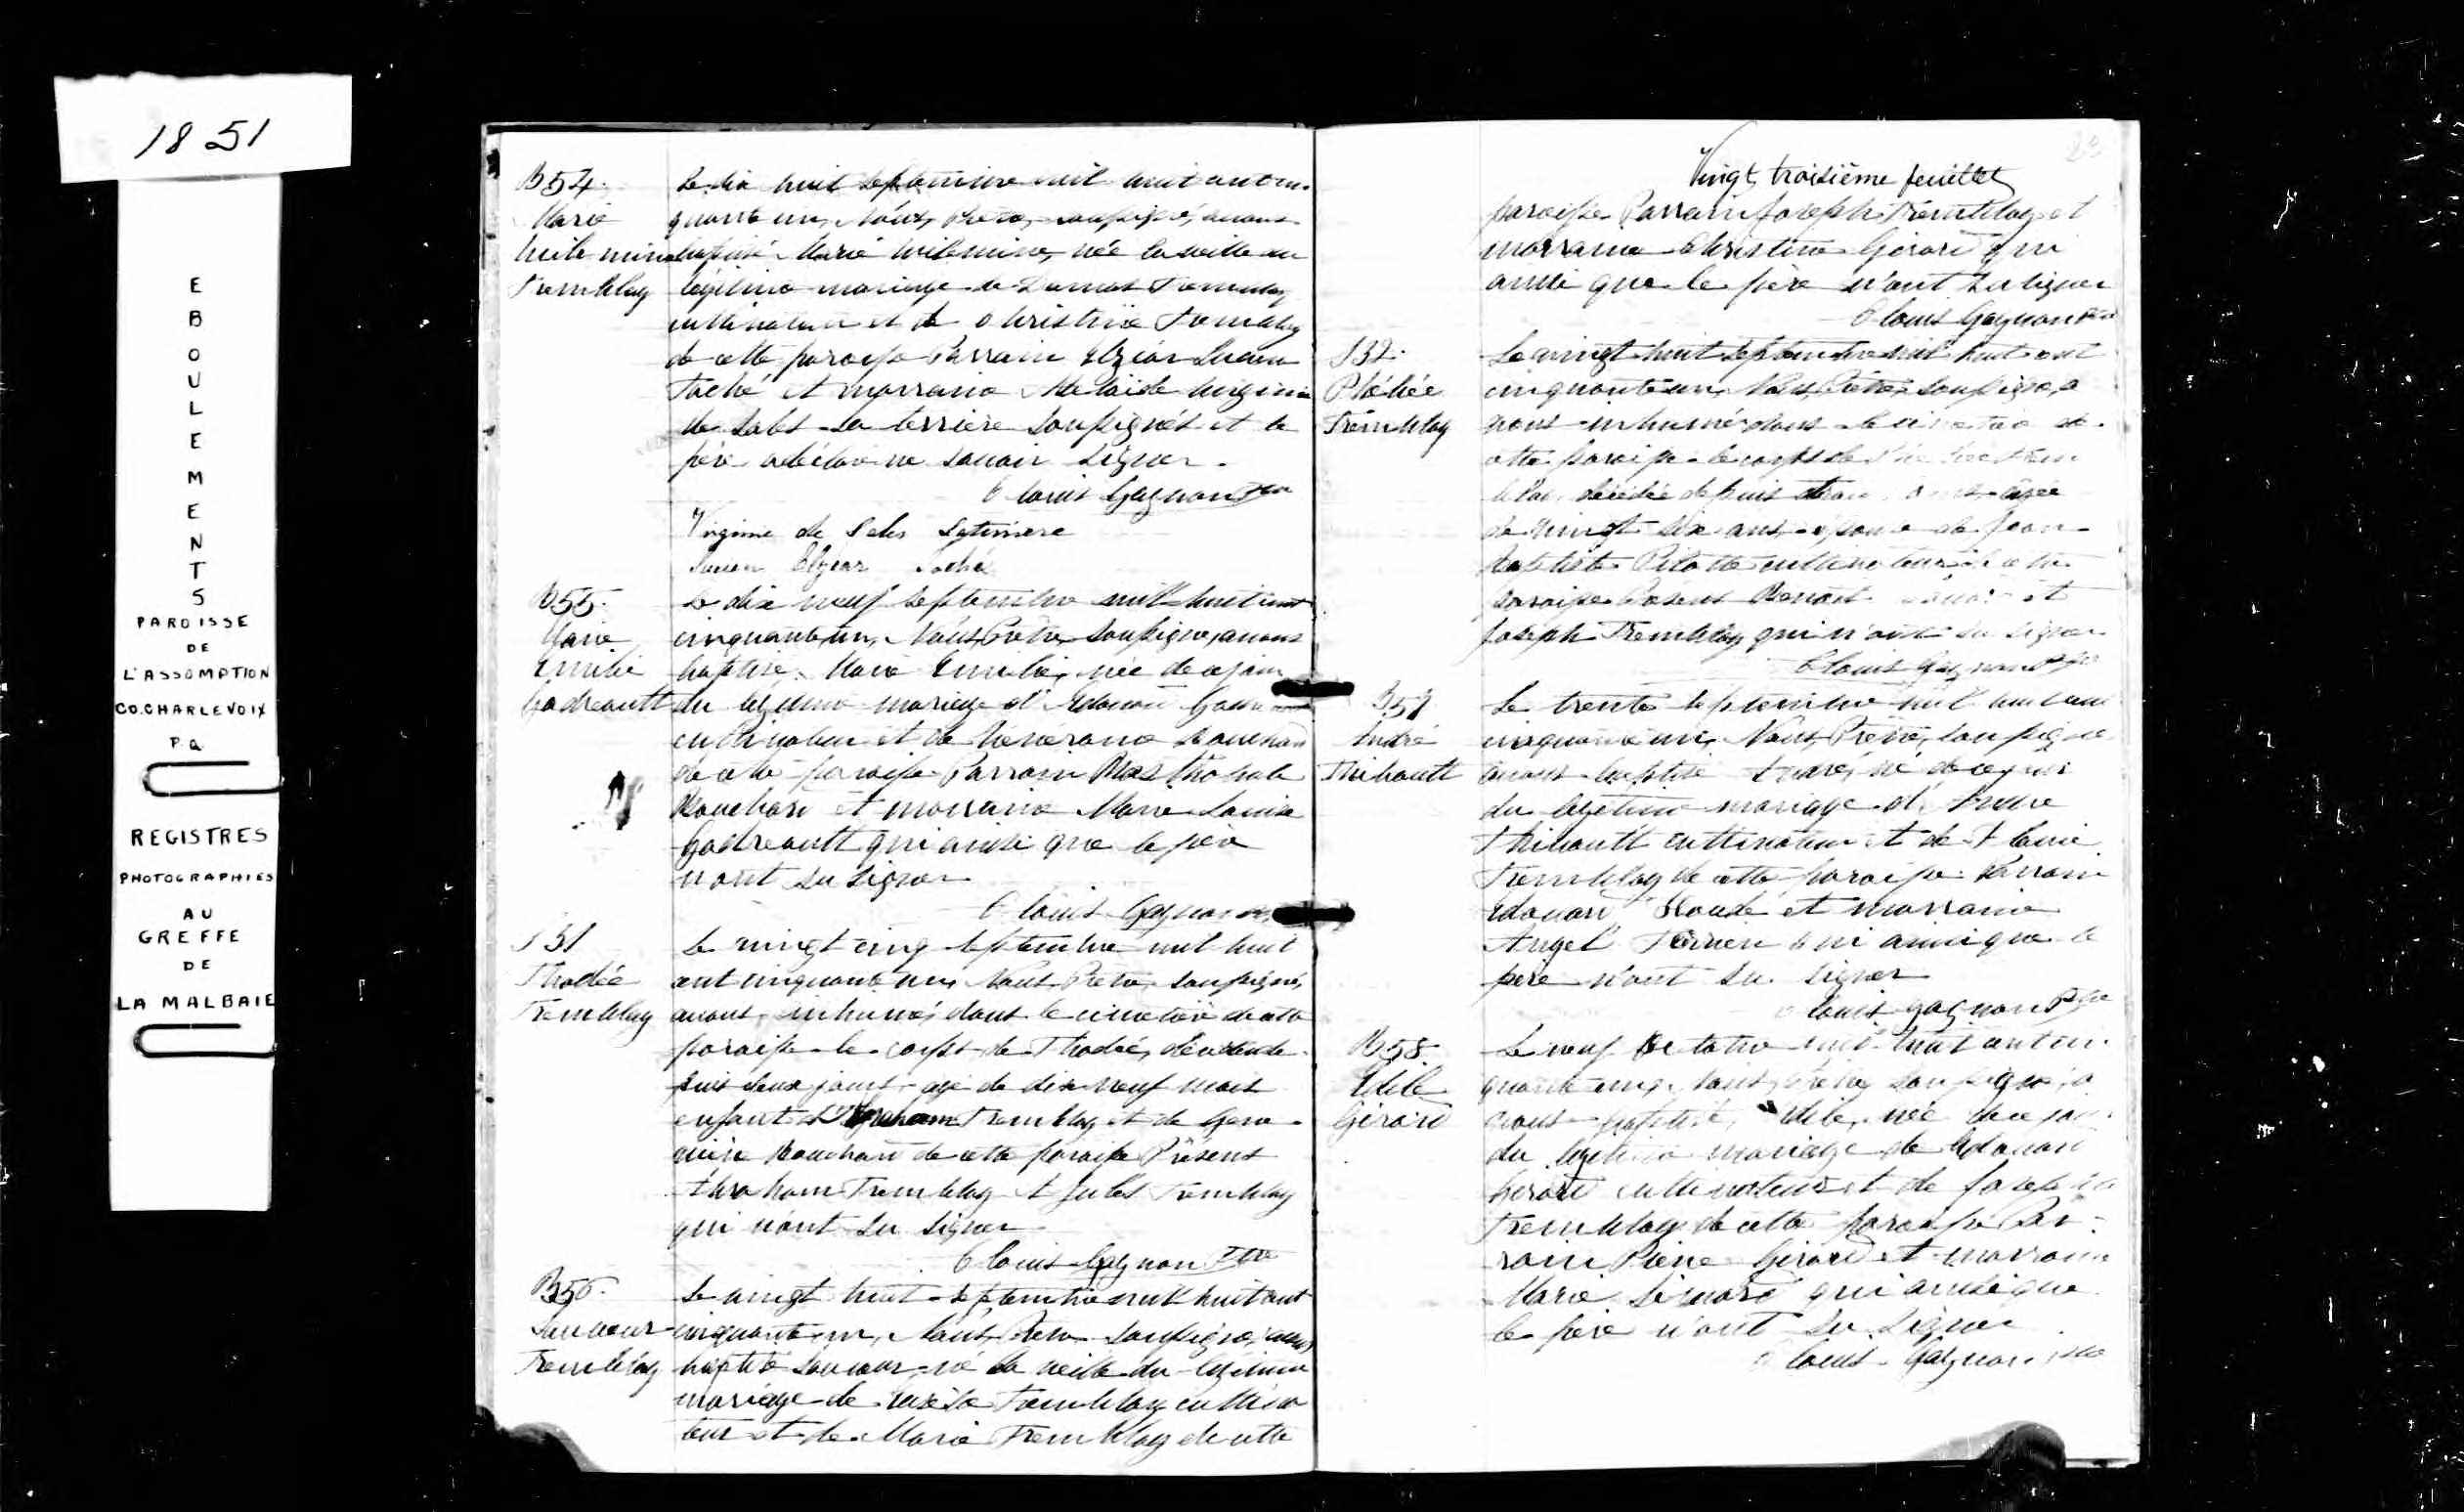 1851
EBOULEMENTS
PAROISSE
DE
L'ASSOMPTION
CO. CHARLEVOIX
P.Q.
REGISTRES
PHOTOGRAPHIES
AU
GREFFE
DE
LA MALBAIE
B54.
Marie
Tremblay
Le dix huit septembre mil huit cent cin-
quante un, Nous, Prêtre, soussigné, avons
baptisé Marie née la veille du
légitime mariage de Tremblay
cultivateur et de Christine Tremblay
de cette paroisse Parrain Elzéar Lucien
Taché et marraine Adelaide Virginie
de Sales La terrière soussignés et le
père a déclaré ne savoir signer.
Clovis Gagnon Ptre
Virginie de Sales Laterriere
Lucien Elzear Taché
B55.
Marie
Emilie
Gadreault
Le dix neuf septembre mil huit cent
cinquante un, Nous, Prêtre, soussigné, avons
baptisé Marie Emilie, née de ce jour
du légitime mariage d'Edouard
cultivateur et de Bouchard
de cette paroisse Parrain
Bouchard et marraine Marie Louise
Gadreault qui ainsi que le père
n'ont su signer
Clovis Gagnon
S31
Thadée
Tremblay
Le vingt cinq septembre mil huit
cent cinquante un, Nous, Prêtre, soussigné,
avons inhumé dans le cimetière de cette
paroisse le corps de Thadée, décédé de-
puis deux jours agé de dix neuf mois
enfant d'Abraham Tremblay et de Gene-
viève Bouchard de cette paroisse Présens
Abraham Tremblay et Jules Tremblay
qui n'ont su signer
Clovis Gagnon Ptre
B56.
Sauveur
Tremblay
Le vingt huit septembre mil huit cent
cinquante un, Nous, Prêtre, soussigné, avons
baptisé Sauveur, né la veille du légitime
mariage de Tremblay cultiva
teur et de Marie Tremblay de cette
23
Vingt troisième feuillet
paroisse Parrain Joseph Tremblay et
marraine Christine Gérard qui
ainsi que le père n'ont su signer
Clovis Gagnon Ptre
S32.
Tremblay
Le vingt huit septembre mil huit cent
cinquante un, Nous, Prêtre, soussigné, a
vons inhumé dans le cimetière de
cette paroisse le corps de
décédée depuis agée
de vingt six ans épouse de Jean
Baptiste Pilotte cultivateur de cette
paroisse Présens et
Joseph Tremblay qui n'ont su signer
Clovis Gagnon Ptre
B57
André
Thibault
Le trente septembre mil huit cent
cinquante un, Nous, Prêtre, soussigné
avons baptisé André, né de ce jour
du légitime mariage d'André
Thibault cultivateur et de
Tremblay de cette paroisse Parrain
Edouard et marraine
Angel qui ainsi que le
père n'ont su signer
Clovis Gagnon Ptre
B58.
Gérard
Le neuf Octobre mil huit cent cin-
quante un, Nous, Prêtre, soussigné, a
vons baptisé née de ce jour
du légitime mariage de Edouard
Gérard cultivateur et de
Tremblay de cette paroisse Par-
rain Pierre Gérard et marraine
Marie Simard qui ainsi que
le père n'ont su signer
Clovis Gagnon Ptre